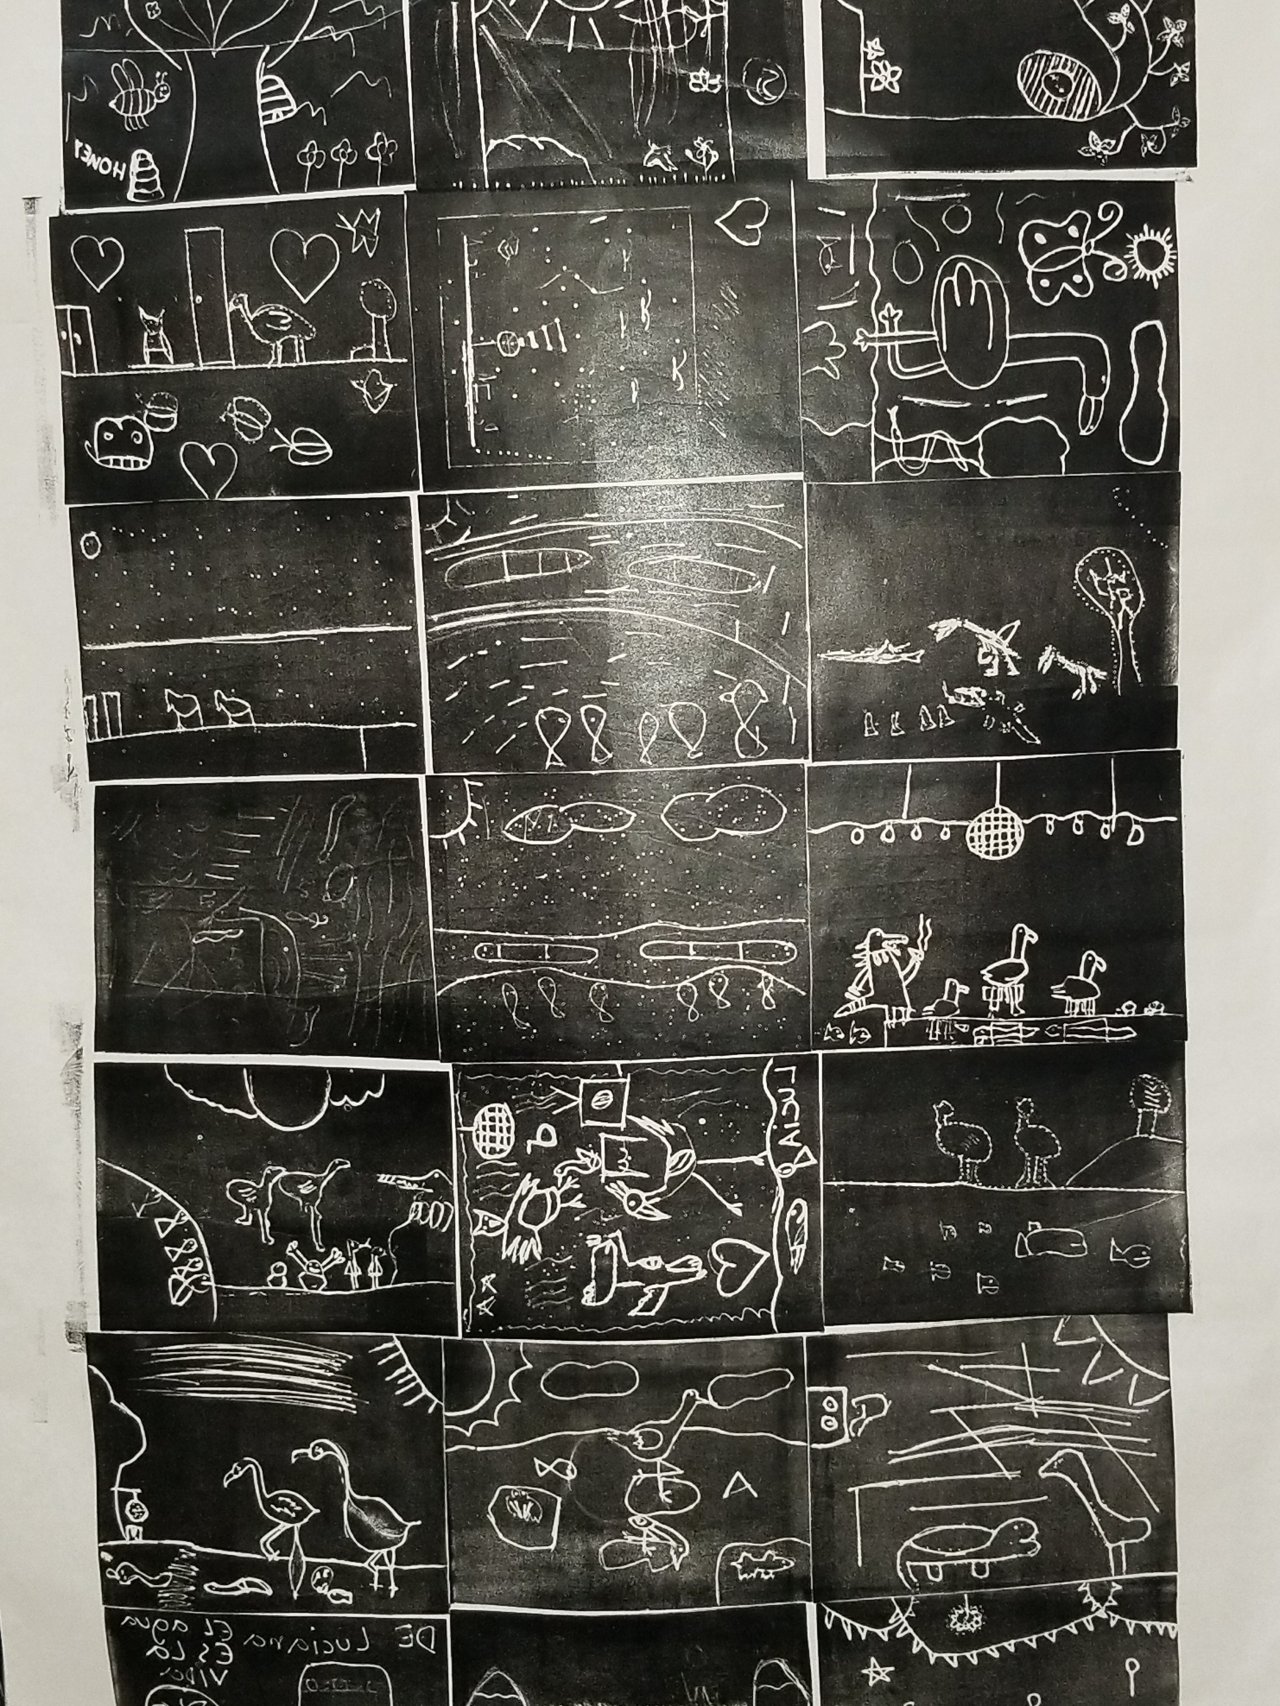 HONEY
LUCIA
DE Luciana
EL agua
ES LA
VIDA